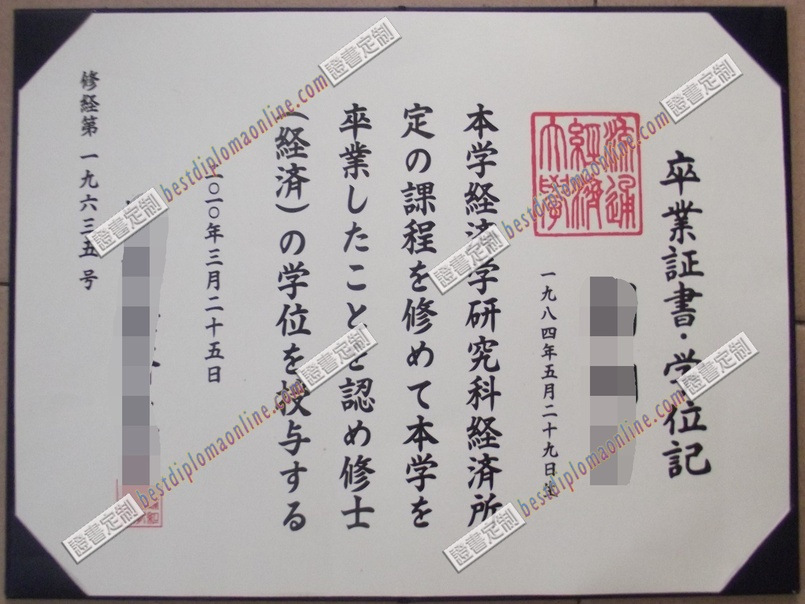 卒業証書・学位記
流通
経済
大學
一九八四年五月二十九日生
本学経済学研究科経済所
定の課程を修めて本学を
卒業したことを認め修士
（経済）の学位を授与する
二〇一〇年三月二十五日
修経第一九六三五号
證書定制
bestdiplomaonline.com
證書定制
證書定制
bestdiplomaonline.com
證書定制
證書定制
bestdiplomaonline.com
證書定制
證書定制
bestdiplomaonline.com
證書定制